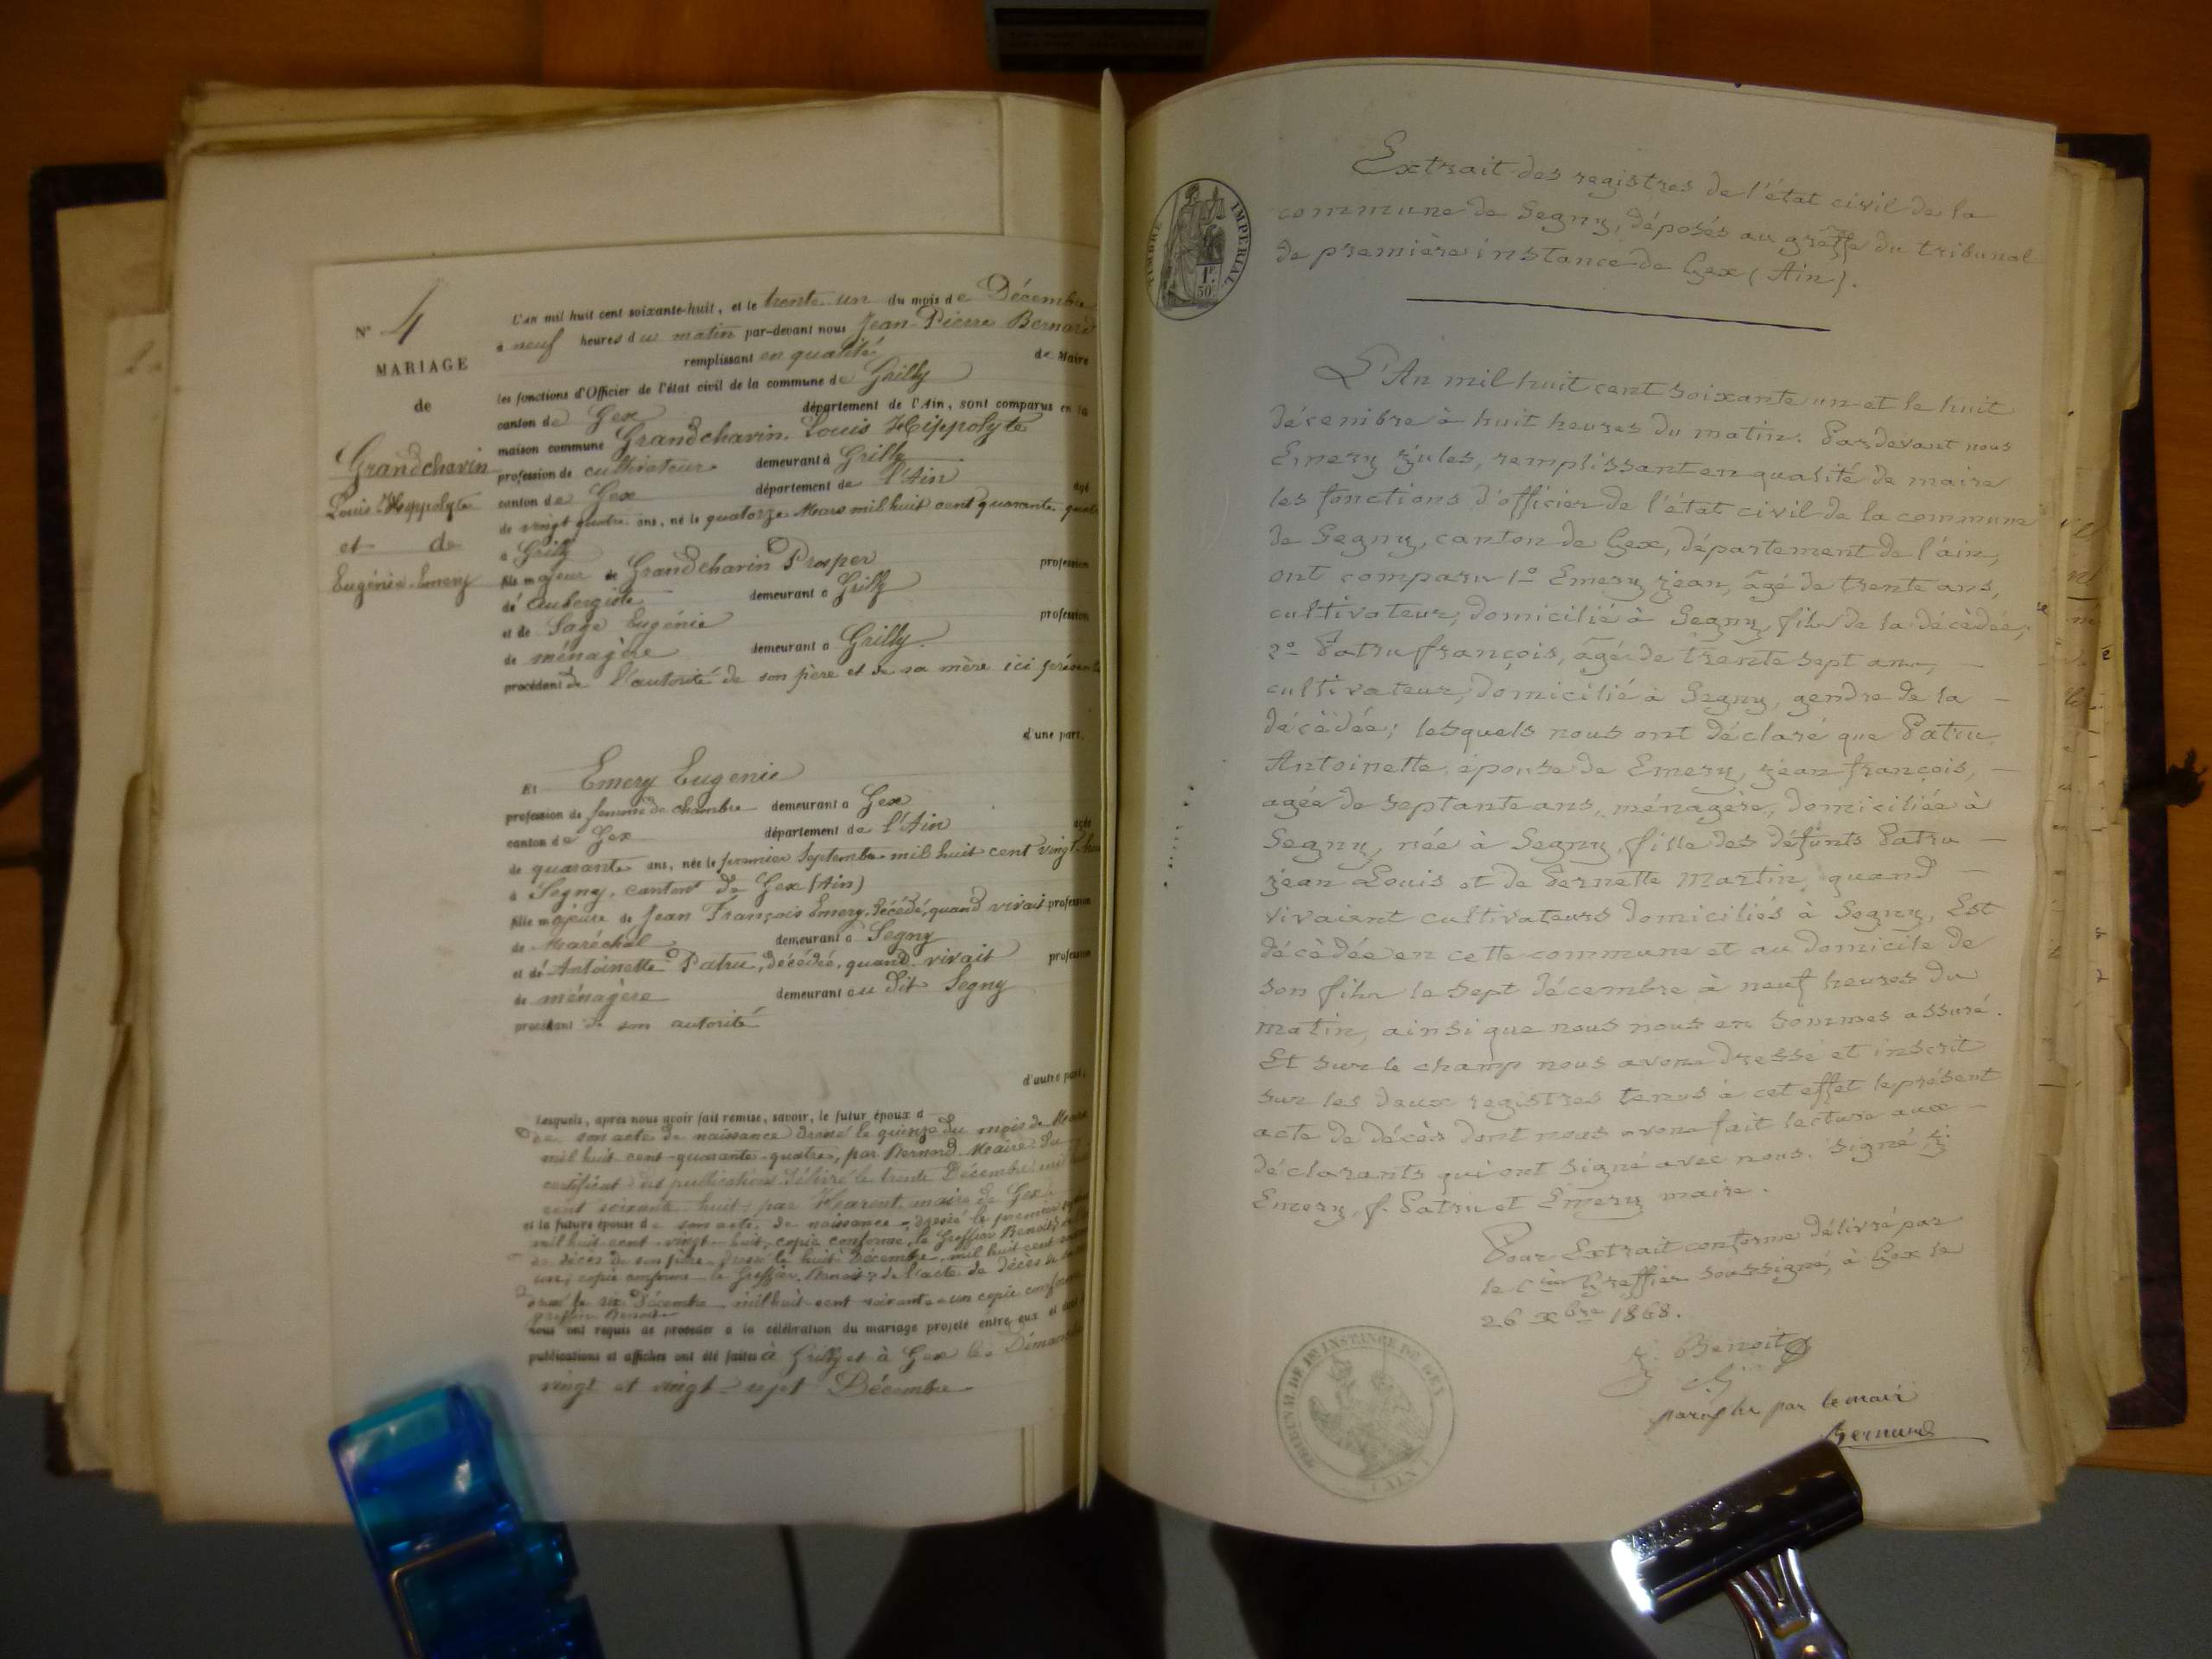 N° 4
MARIAGE
de
Grandchavin
Louis-Hippolyte
et de
Eugénie Emery
L'an mil huit cent soixante-huit, et le trente un du mois de Décembre
à neuf heures du matin par-devant nous Jean-Pierre Bernard
remplissant en qualité de Maire
les fonctions d'Officier de l'état civil de la commune de Grilly
canton de Gex département de l'Ain, sont comparus en la
maison commune Grandchavin, Louis Hippolyte
profession de cultivateur demeurant à Grilly
canton de Gex département de l'Ain agé
de vingt quatre ans, né le quatorze Mars mil huit cent quarante
à Grilly
fils majeur de Grandchavin Prosper profession
de aubergiste demeurant à Grilly
et de Sage Eugénie profession
de ménagère demeurant à Grilly.
procédant de l'autorité de son père et de sa mère ici
d'une part,
Et Emery Eugenie
profession de femme de chambre demeurant à Gex
canton de Gex département de l'Ain agée
de quarante ans, née le premier Septembre mil huit cent vingt
à Segny, canton de Gex (Ain)
fille majeure de Jean François Emery, décédé, quand vivait profession
de Maréchal demeurant à Segny
et de Antoinette Patru, décédée, quand vivait profession
de ménagère demeurant au dit Segny
procédant de son autorité
d'autre part,
Lesquels, après nous avoir fait remise, savoir, le futur époux d
de son acte de naissance dressé le quinze du mois de
mil huit cent quarante-quatre, par Bernard Maire du
certificat des publications délivré le trente Décembre mil
cent soixante huit par Harent, maire de Gex
et la future épouse de son acte de naissance dressé le premier
mil huit cent vingt-huit, copie conforme, le Greffier Benoit,
de décès de son père dressé le huit Décembre mil huit cent
un, copie conforme le Greffier Benoit; de l'acte de décès de
dressé le six Décembre mil huit cent soixante-un copie
greffier Benoit
nous ont requis de procéder à la célébration du mariage projeté entre eux et
publications et affiches ont été faites à Grilly et à Gex les Dimanches
vingt et vingt-sept Décembre
TIMBRE IMPERIAL
1F 50
Extrait des registres de l'état civil de la
commune de Segny, déposés au greffe du tribunal
de première instance de Gex (Ain).
L'An mil huit cent soixante un et le huit
décembre à huit heures du matin. Par devant nous
Emery jules, remplissant en qualité de maire
les fonctions d'officier de l'état civil de la commune
de Segny, canton de Gex, département de l'ain,
ont comparu 1° Emery jean, âgé de trente ans,
cultivateur, domicilié à Segny, fils de la décédée;
2° Patru françois, âgé de trente sept ans,
cultivateur, domicilié à Segny, gendre de la
décédée; lesquels nous ont déclaré que Patru
Antoinette, épouse de Emery, jean françois,
agée de septante ans, ménagère, domiciliée à
Segny, née à Segny, fille des défunts Patru
jean Louis et de Pernette Martin, quand
vivaient cultivateurs domiciliés à Segny, Est
décédée en cette commune et au domicile de
son fils le sept décembre à neuf heures du
matin, ainsi que nous nous en sommes assuré.
Et sur le champ nous avons dressé et inscrit
sur les deux registres tenus à cet effet le présent
acte de décès dont nous avons fait lecture aux
déclarants qui ont signé avec nous. Signé j.
Emery, f. Patru et Emery maire.
Pour Extrait conforme délivré par
le Cis Greffier soussigné, à Gex le
26 Xbre 1868.
j. Benoit
paraphé par le maire
Bernard
TRIBUNAL DE 1re INSTANCE DE GEX
(AIN)